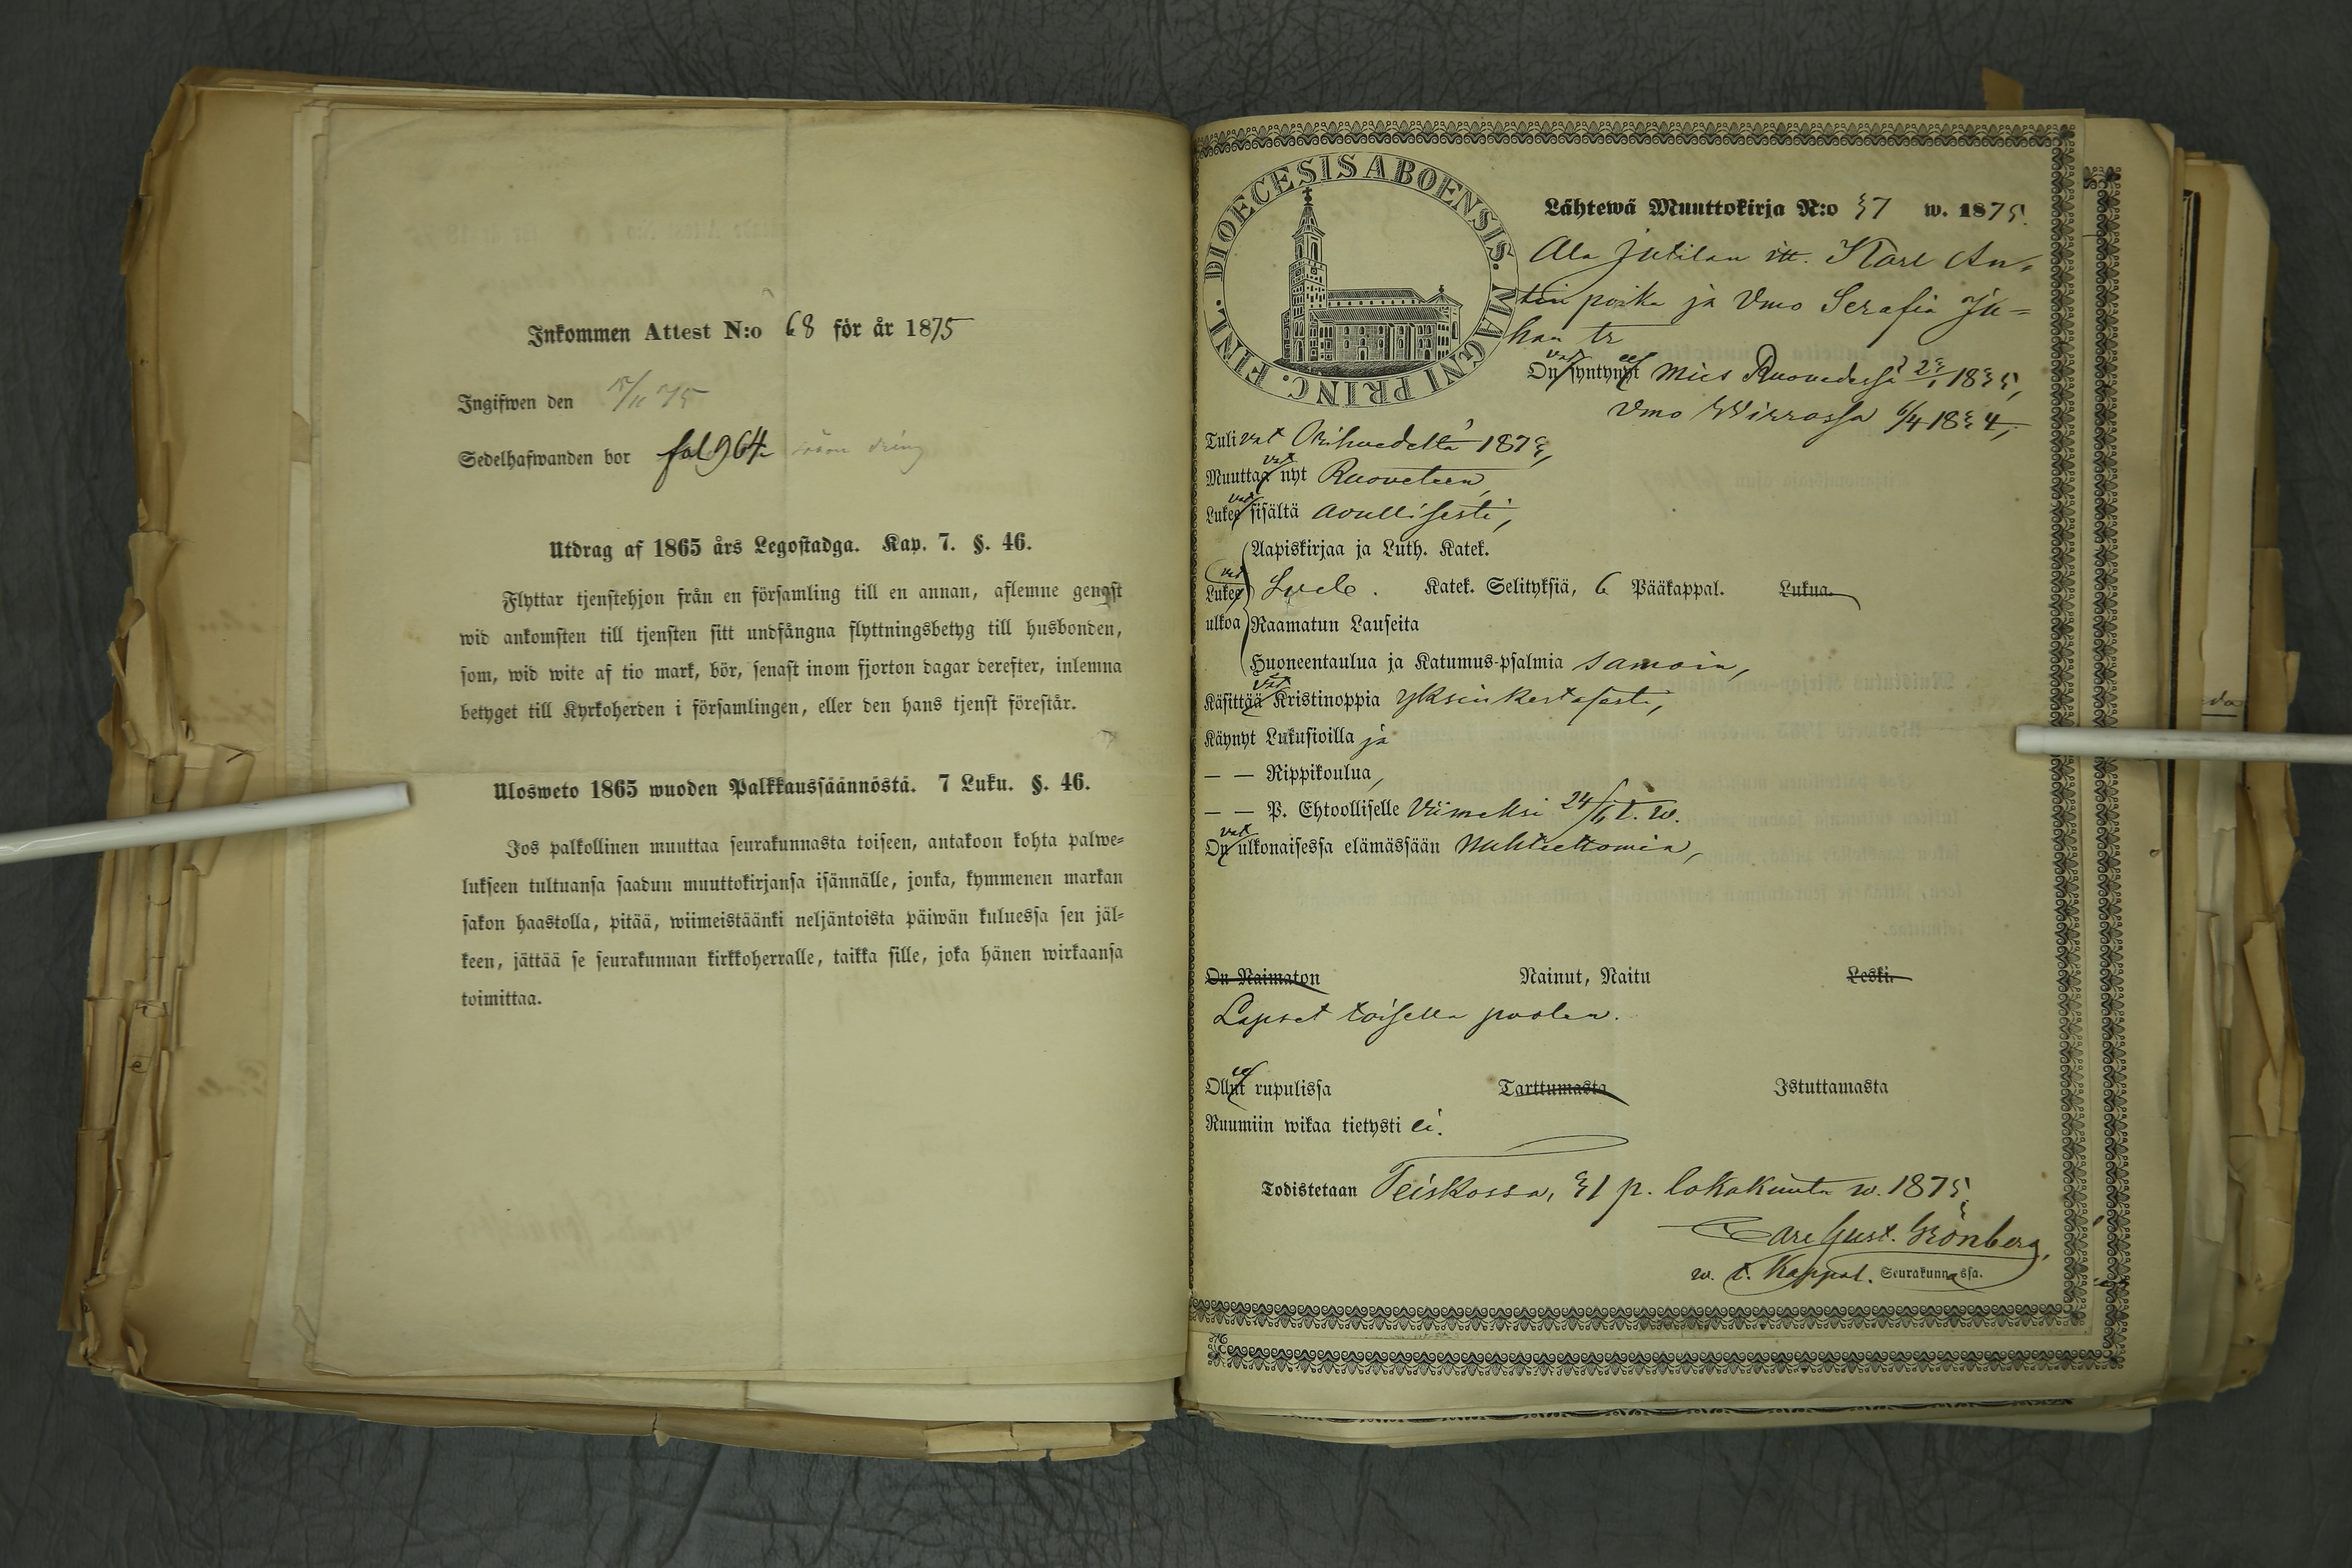 Inkommen Attest N:o 68 för år 1875
Ingifwen den /11 75
Sedelhafwanden bor fol 964
Utdrag af 1865 års Legostadga. Kap. 7. §. 46.
Flyttar tjenstehjon från en församling till en annan, aflemne genast
wid ankomsten till tjensten sitt undfångna flyttningsbetyg till husbonden,
som, wid wite af tio mark, bör, senast inom fjorton dagar derefter, inlemna
betyget till Kyrkoherden i församlingen, eller den hans tjenst förestår.
Ulosweto 1865 wuoden Palkkaussäännöstä. 7 Luku. §. 46.
Jos palkollinen muuttaa seurakunnasta toiseen, antakoon kohta palwe-
lukseen tultuansa saadun muuttokirjansa isännälle, jonka, kymmenen markan
sakon haastolla, pitää, wiimeistäänki neljäntoista päiwän kuluessa sen jäl-
keen, jättää se seurakunnan kirkkoherralle, taikka sille, joka hänen wirkaansa
toimittaa.
FINL. DIOECESIS ABOENSIS. MAGNI PRINC.
Lähtewä Muuttokirja N:o 37 w. 1875.
Ala Jutilan itt. Karl An-
tin poika ja Vmo Serafia Ju-
han tr
On vat syntynyt eet Mies Ruovedessä 1835,
Vmo Wirroissa 6/4 1834,
Tuli vat Orihvedeltä 1873,
Muuttaa vat nyt Ruoveteen,
Lukee vat sisältä avullisesti,
Aapiskirjaa ja Luth. Katek.
Lukee vat Katek. Selityksiä, 6 Pääkappal. Lukua.
ulkoa Raamatun Lauseita
Huoneentaulua ja Katumus-psalmia samoin,
Käsittää vät Kristinoppia yksinkertasesti,
Käynyt Lukusioilla ja
— — Rippikoulua,
— — P. Ehtoolliselle Viimeksi 24/ t. w.
On vat ulkonaisessa elämässään Nuhteettomia,
On Naimaton Nainut, Naitu Leski.
Lapset toisella puolen.
Ollut rupulissa Tarttumasta Istuttamasta
Ruumiin wikaa tietysti ei.
Todistetaan Teiskossa, 31 p. lokakuuta w. 1875
Carl Gust. Grönberg,
w. t. Kappal. Seurakunnassa.